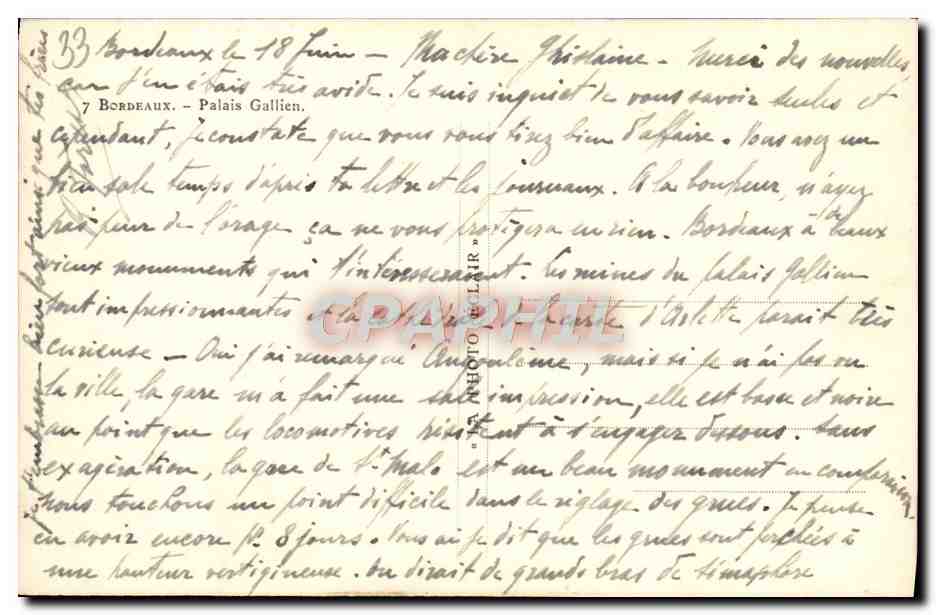 33 Bordeaux le 18 Juin – Ma chère Ghislaine – Merci des nouvelles
car j'en étais très avide. Je suis inquiet de vous savoir seules et
7 BORDEAUX. – Palais Gallien.
cependant, je constate que vous vous tirez bien d'affaire. Vous avez un
bien sale temps d'après ta lettre et les journaux. A la bonheur, n'ayez
pas peur de l'orage ça ne vous protègera en rien. Bordeaux a de beaux
vieux monuments qui t'intéresseraient. Les ruines du palais Gallien
sont impressionnantes et la cathédrale d'Arlette parait très
curieuse – Oui j'ai remarqué Angoulême, mais si je n'ai pas vu
la ville, la gare m'a fait une sale impression, elle est basse et noire
au point que les locomotives hésitent à s'engager dessous. Sans
exagération, la gare de St Malo est un beau monument en comparaison.
nous touchons un point difficile dans le réglage des grues. Je pense
en avoir encore pr 8 jours. Vous ai je dit que les grues sont perchées à
une hauteur vertigineuse. On dirait de grands bras de sémaphore
je t'embrasse bien fort ainsi que tes
« LA PHOTO ECLAIR »
CPAPHIL